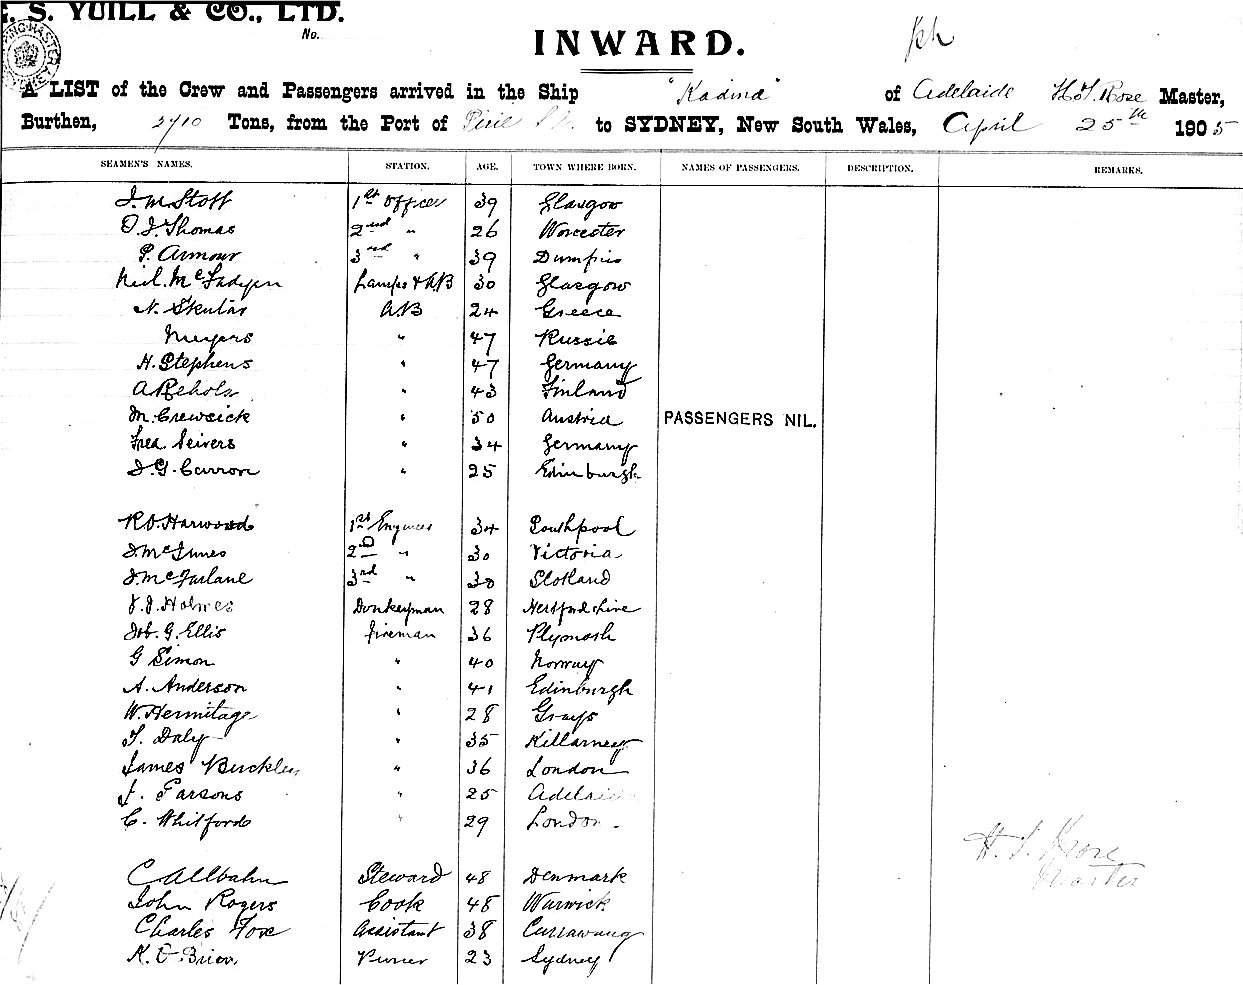 . S. YUILL & CO., LTD.
No.
INWARD.
A LIST of the Crew and Passengers arrived in the Ship "Kadina" of Adelaide H. S. Rose Master,
Burthen, 2710 Tons, from the Port of Pirie to SYDNEY, New South Wales, April 25th 1905
SEAMEN'S NAMES. STATION. AGE. TOWN WHERE BORN. NAMES OF PASSENGERS. DESCRIPTION. REMARKS.
J. M. Stott 1st Officer 39 Glasgow
O. J. Thomas 2nd " 26 Worcester
P. Armour 3rd " 39 Dumfries
Neil McFadyen Lamps & AB 30 Glasgow
N. Skutar AB 24 Greece
Meyers " 47 Russia
H. Stephens " 47 Germany
A " 43 Finland
M. Crewsick " 50 Austria PASSENGERS NIL.
Fred. Seivers " 34 Germany
J. G. Carron " 25 Edinburgh
R. O. Harwood 1st Engineer 34 Southpool
J. McInnes 2D " 30 Victoria
J. McFarlane 3rd " 30 Scotland
J. J. Holmes Donkeyman 28 Hertfordshire
Job. G. Ellis fireman 36 Plymoth
G Simon " 40 Norway
A. Anderson " 41 Edinburgh
W. Hermitage " 28 Grays
T. Daly " 35 Killarney
James Buckley " 36 London
J. Parsons " 25 Adelaide
C. Whitford " 29 London
C Allbahn Steward 48 Denmark
John Rogers Cook 48 Warwick
Charles Fox Assistant 38 Currawang
K. O'Brien 23 Sydney
H. S. Rose
Master